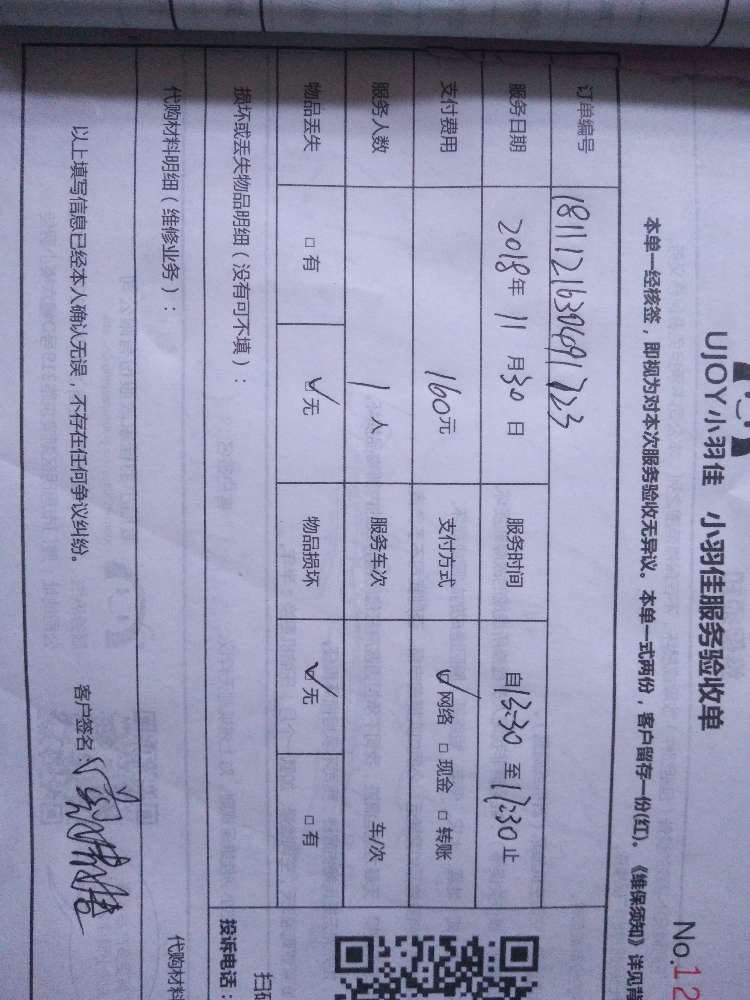 UJOY小羽佳 小羽佳服务验收单
No.12
本单一经核签，即视为对本次服务验收无异议。本单一式两份，客户留存一份(红)。《维保须知》详见背
订单编号 1811121630491723
服务日期 2018年 11 月30 日 服务时间 自13:30 至17:30止
支付费用 160元 支付方式 ☑网络 □现金 □转账
服务人数 1 人 服务车次 车/次
物品丢失 □有 ☑无 物品损坏 ☑无 □有
损坏或丢失物品明细（没有可不填）：
投诉电话：
代购材料明细（维修业务）：
代购材料
以上填写信息已经本人确认无误，不存在任何争议纠纷。 客户签名：